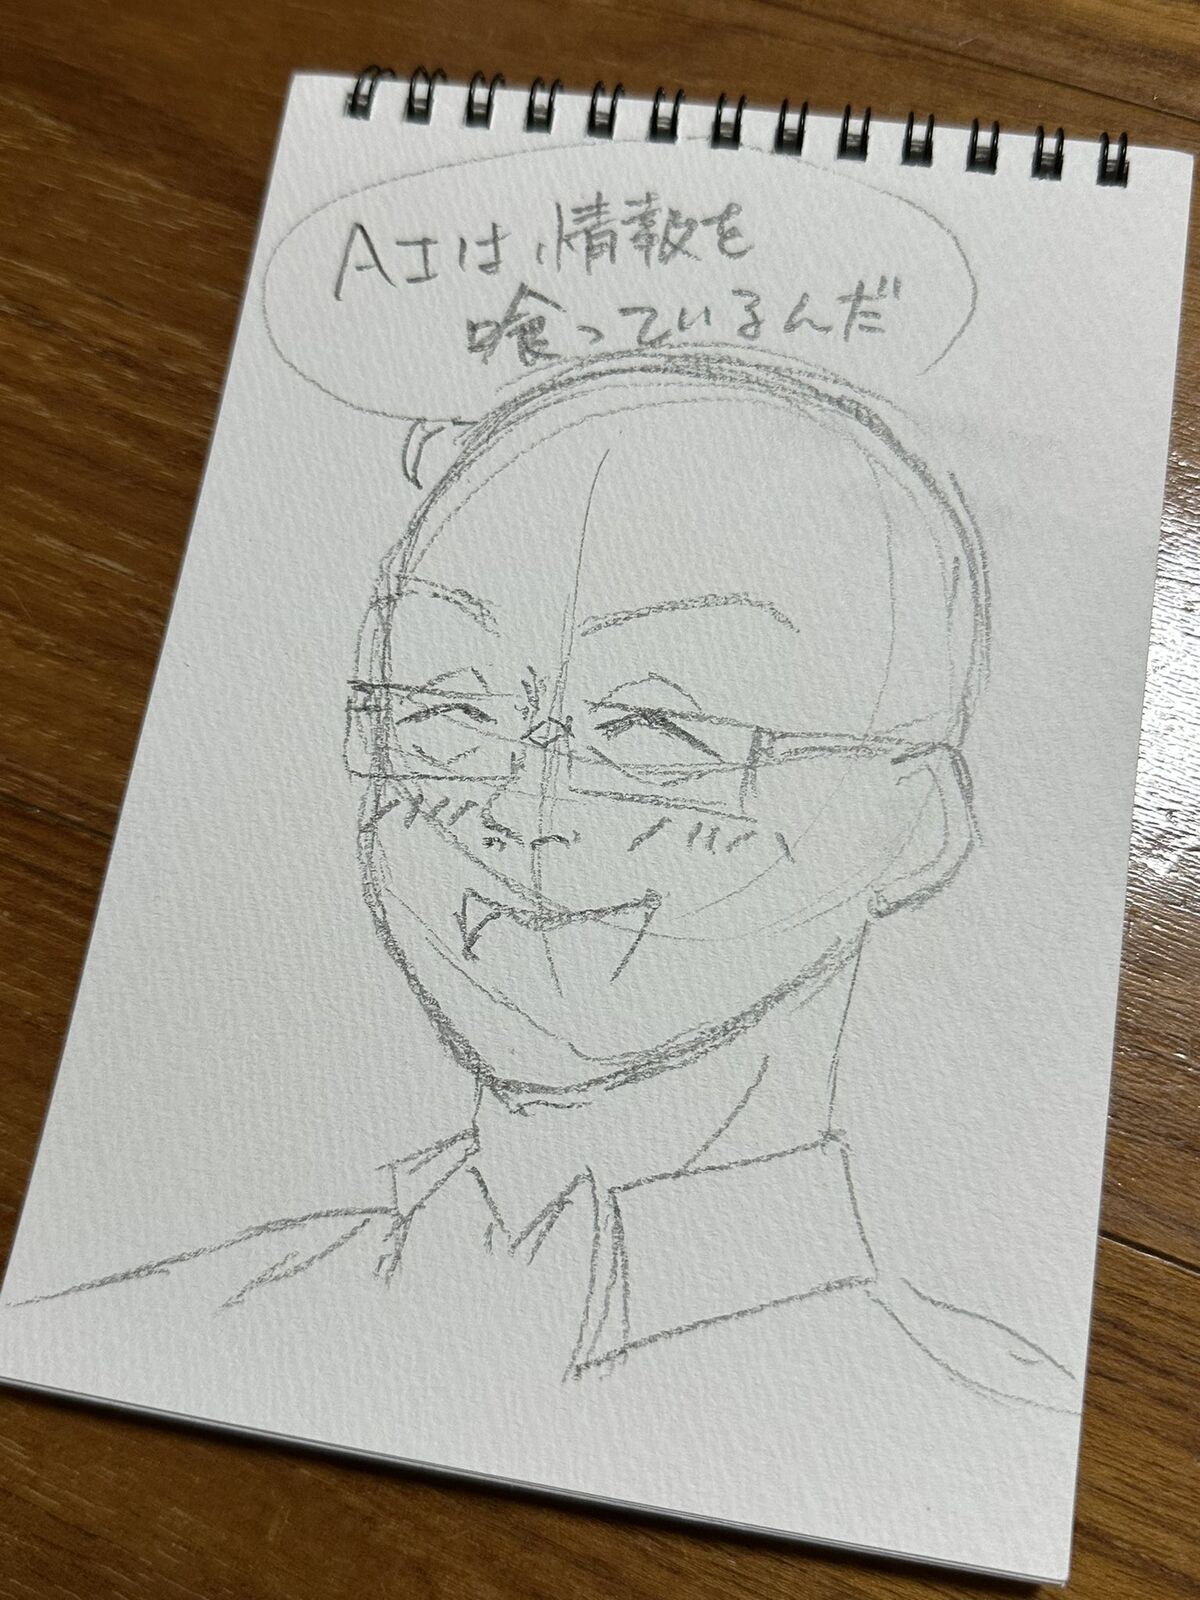 AIは、情報を
喰っているんだ